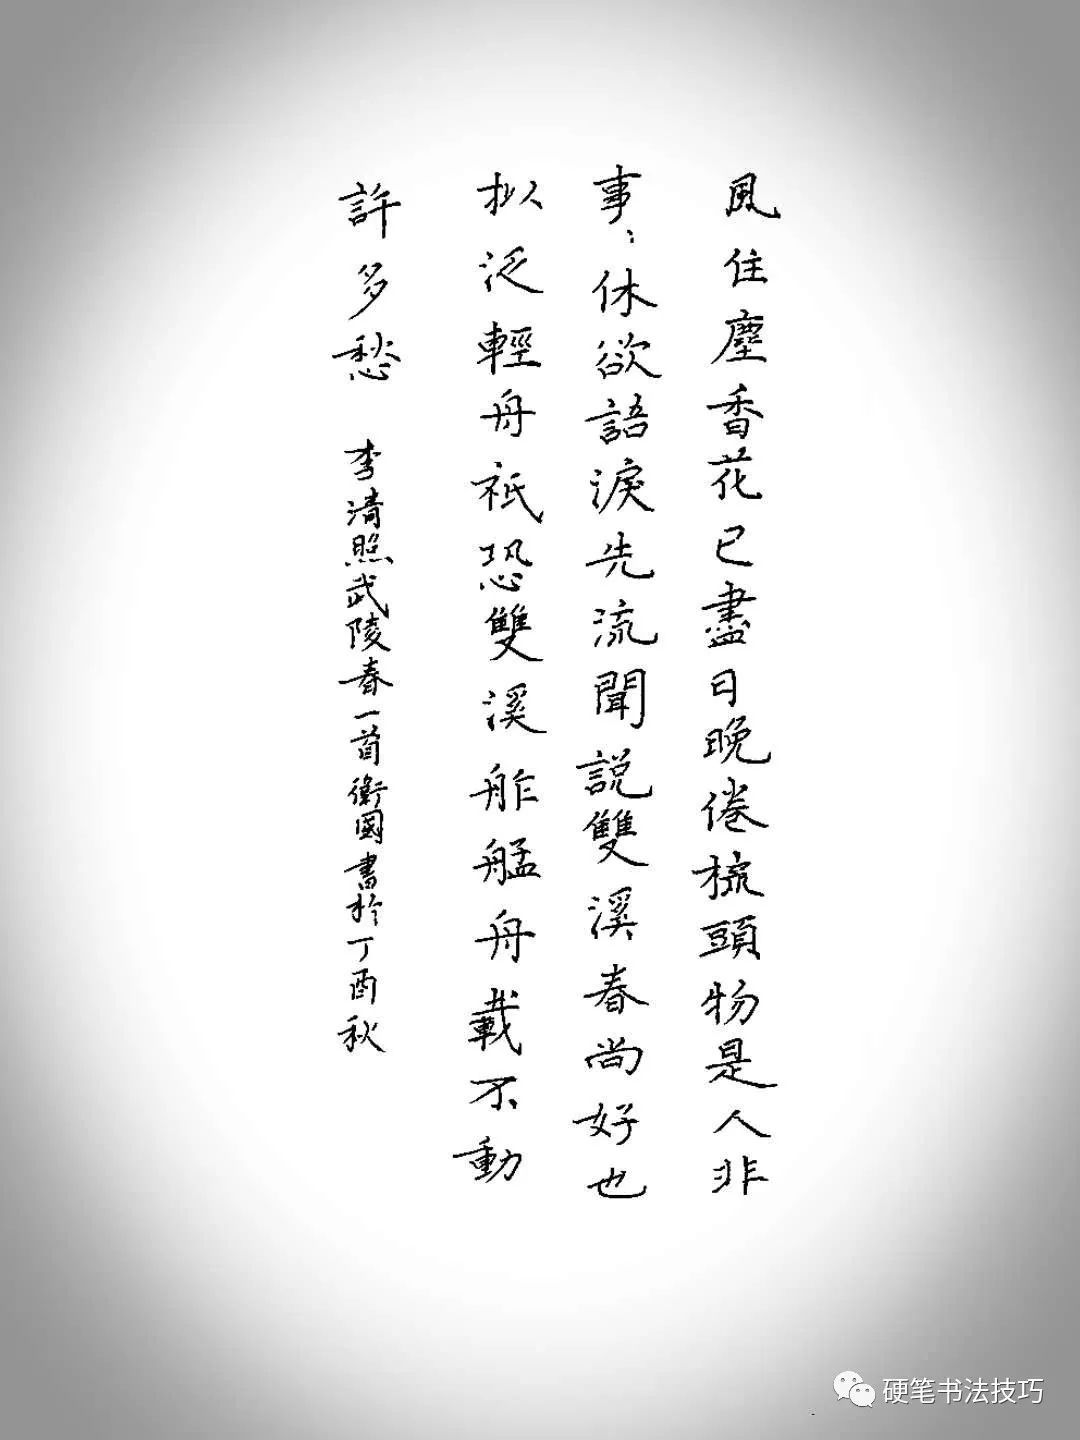 風住塵香花已盡日晚倦梳頭物是人非
事：休欲語淚先流聞說雙溪春尚好也
拟泛輕舟祇恐雙溪舴艋舟載不動
許多愁 李清照武陵春一首衛國書於丁酉秋
硬笔书法技巧